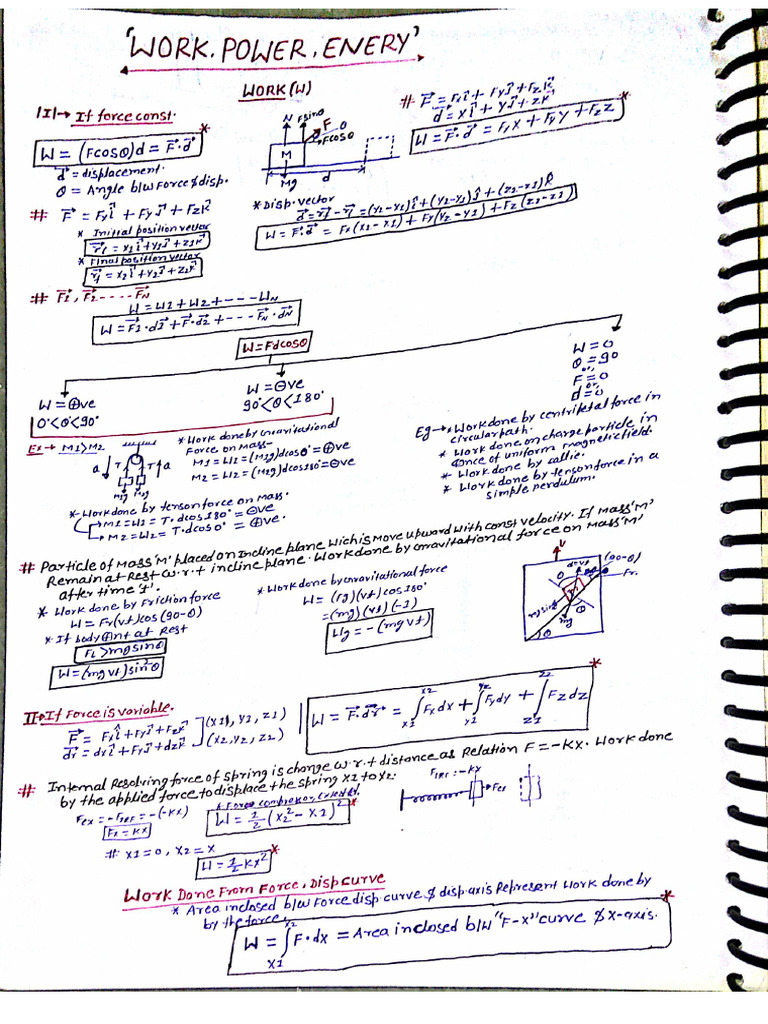 'WORK, POWER, ENERY'
WORK (W)
|I|→ If force const.
W = (Fcosθ)d = F⃗·d⃗ *
d⃗ = displacement.
θ = Angle b/w Force & disp.
N Fsinθ
F
θ
Fcosθ
M
Mg
d
# F⃗ = Fxî + Fyĵ + Fzk̂
d⃗ = xî + yĵ + zk̂
W = F⃗·d⃗ = Fx x + Fy y + Fz z *
# F⃗ = Fxî + Fyĵ + Fzk̂
* Initial position vector
r⃗1 = x1î + y1ĵ + z1k̂
* Final position vector
r⃗f = x2î + y2ĵ + z2k̂
* Disp. vector
W = F⃗·d⃗ = Fx(x2-x1) + Fy(y2-y1) + Fz(z2-z1)
# F⃗1, F⃗2 ----- F⃗N
W = W1 + W2 + --- WN
W = F⃗1·d⃗1 + F⃗·d⃗2 + --- F⃗N·d⃗N
W = Fdcosθ
W = ⊕ve
0°<θ<90°
W = ⊖ve
90°<θ<180°
W = 0
θ = 90
or,
F = 0
or,
d = 0
Ex → M1>M2
a T T a
M1g M2g
* Work done by Gravitational
Force on Mass-
M1 = W1 = (M1g)dcos0° = ⊕ve
M2 = W2 = (M2g)dcos180° = ⊖ve
* Work done by tension force on Mass.
M1 = W1 = T·dcos180° = ⊖ve
M2 = W2 = T·dcos0° = ⊕ve.
Eg → * Work done by centripetal force in
circular path.
* Work done on charge particle in
of uniform magnetic field.
* Work done by
* Work done by tension force in a
simple pendulum.
# Particle of Mass 'M' placed on Incline plane wich is move upward with const velocity. If Mass 'M'
Remain at Rest w.r.t incline plane. Work done by Gravitational force on Mass 'M'
after time 't'.
* Work done by Friction force
W = Fr(vt)cos(90-θ)
* If body at Rest
FL > mgsinθ
W = (mgvt)sin²θ
* Work done by Gravitational force
W = (Fg)(vt)cos180°
= (mg)(vt)(-1)
Wg = -(mgvt)
v
d=vt
(90-θ)
Fr.
θ
mgsinθ
mg
θ
θ
II → If Force is variable.
F⃗ = Fxî + Fyĵ + Fzk̂ ] (x1, y1, z1)
dr⃗ = dxî + dyĵ + dzk̂ ] (x2, y2, z2)
W = F⃗·dr⃗ = ∫x1^x2 Fxdx + ∫y1^y2 Fydy + ∫z1^z2 Fzdz *
# Internal Resolving force of spring is change w.r.t distance as Relation F = -Kx. Work done
by the applied force to displace the spring x1 to x2.
Fex = -FIRF = -(-Kx)
Fx = Kx
W = 1/2 (x2² - x1)² *
FIRF = -Kx
Fex
# x1 = 0, x2 = x
W = 1/2 Kx² *
Work Done From Force, Disp Curve
* Area inclosed b/w Force disp. curve & disp. axis Represent Work done by
by the force.
W = ∫x1^x2 F·dx = Area inclosed b/w "F-x" curve & x-axis. *